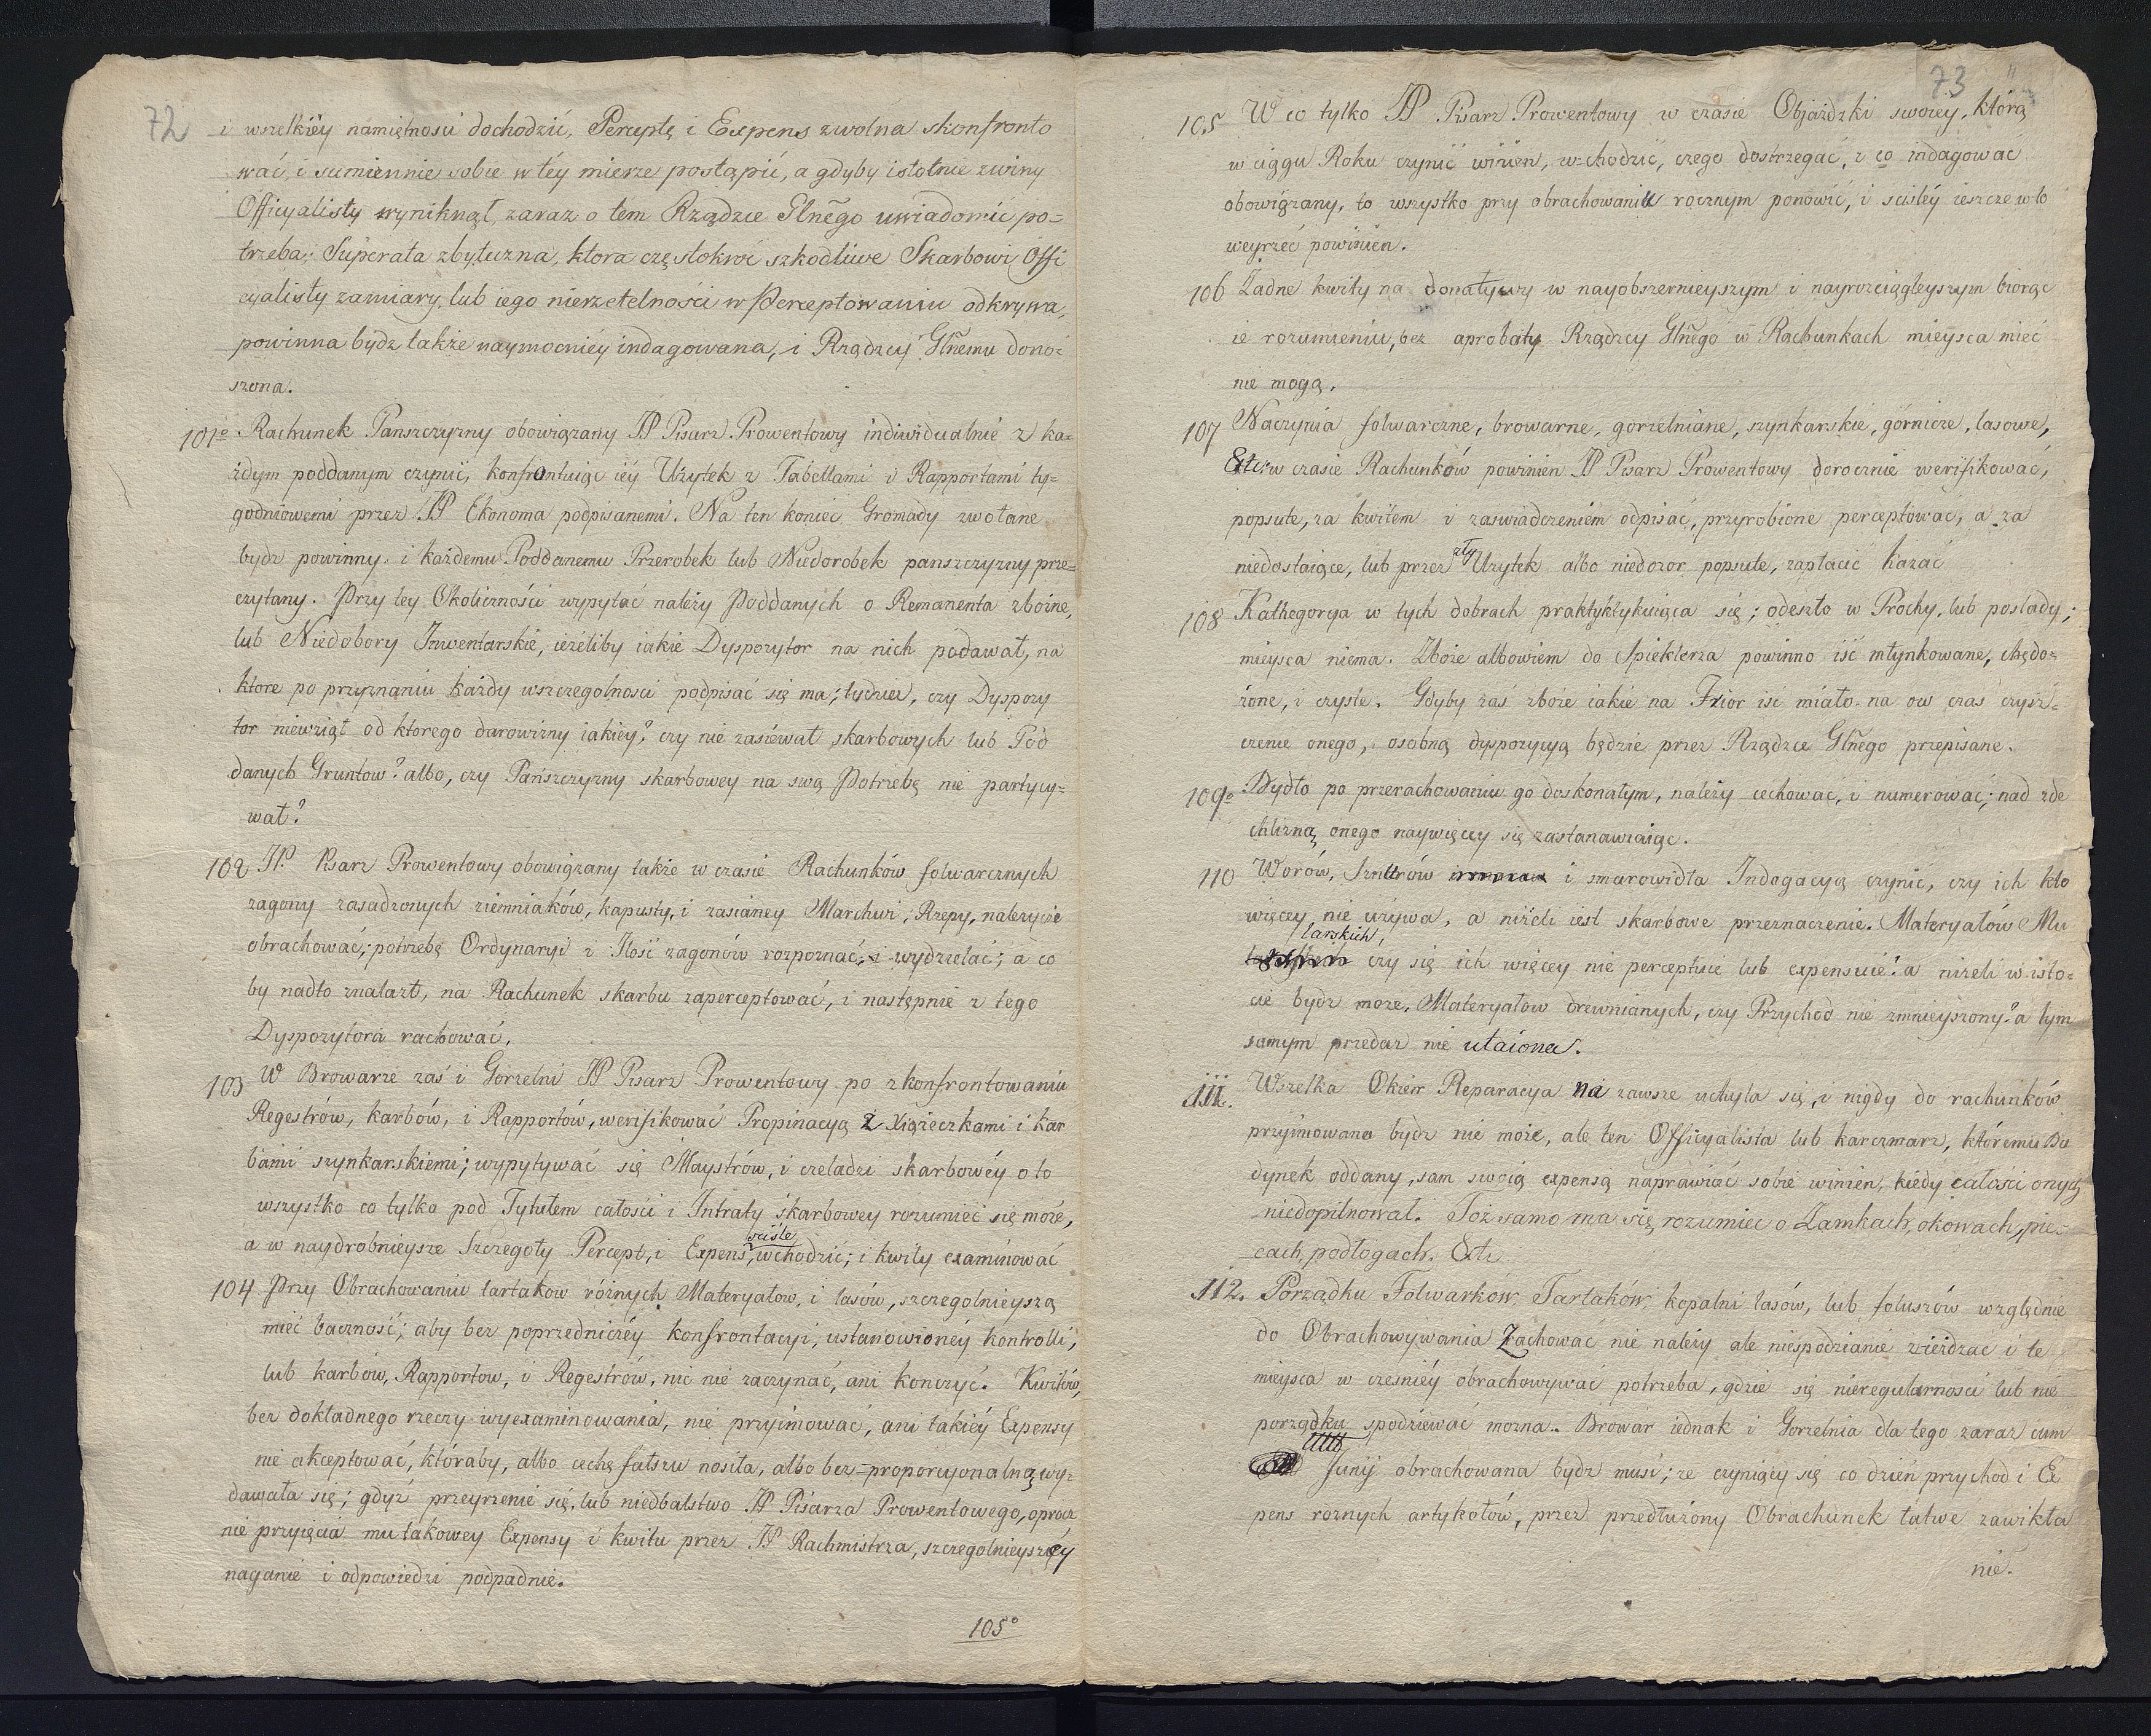 72
i wszelkiéy namiętnosci dochodzić, Perceptę i Expens zwolna skonfronto
wać, i sumiennie sobie w téy mierze postąpić, a gdyby istotnie z winy
Officyalisty wyniknął, zaraz o tem Rządzce Glnego uwiadomić po-
trzeba; Superata zbyteczna, ktora częstokroć szkodliwe Skarbowi Offi
cyalisty zamiary, lub iego nierzetelności w Perceptowaniu odkrywa,
powinna bydz także naymocniéy indagowana, i Rządzcy Glnemu dono-
szona.
101o Rachunek Panszczyzny obowiązany JP Pisarz Prowentowy indiwidualnie z ka-
żdym poddanym czynić, konfrontuiąc iéy Użytek z Tabellami i Rapportami ty-
godniowemi przez JP Ekonoma podpisanemi. Na ten koniec Gromady zwołane
bydz powinny, i każdemu Poddanemu Przerobek lub Niedorobek panszczyzny prze-
czytany. Przy tey Okoliczności wypytać należy Poddanych o Remanenta zbożne,
lub Niedobory Inwentarskie, ieżeliby iakie Dyspozytor na nich podawał, na
ktore po przyznaniu każdy wszczegolnosci podpisać się ma; tudzież, czy Dyspozy
tor niewziął od ktorego darowizny iakiéy? czy nie zasiéwał skarbowych lub Pod
danych Gruntow? albo, czy Pańszczyzny skarbowey na swą Potrzebę nie partycy-
wał?
102 JP. Pisarz Prowentowy obowiązany także w czasie Rachunków folwarcznych
zagony zasadzonych ziemniaków, kapusty, i zasianey Marchwi, Rzepy, należycie
obrachować; potrzebę Ordynaryi z Ilość zagonów rozpoznać, i wydzielać; a co
by nadto znalazł, na Rachunek skarbu zaperceptować, i następnie z tego
Dyspozytora rachować.
103 W Browarze zaś i Gorzelni JP Pisarz Prowentowy po zkonfrontowaniu
Regestrów, karbów, i Rapportów, weryfikować Propinacyą z Xiążeczkami i kar
bami szynkarskiemi; wypytywać się Maystrów, i czeladzi skarbowéy o to
wszystko co tylko pod Tytułem całości i Intraty skarbowey rozumieć się może,
ściśle
a w naydrobnieysze Szczegoły Percept, i Expens, wchodzić; i kwity examinować
104 Przy Obrachowaniu tartakow różnych Materyałow, i lasów, szczegolnieyszą
mieć baczność; aby bez poprzedniczéy konfrontacyi, ustanowionéy kontrolli,
lub karbów, Rapportow, i Regestrów, nic nie zaczynać, ani konczyć. Kwitów,
bez dokładnego rzeczy wyexaminowania, nie przyimować, ani takiéy Expensy
nie akceptować, któraby, albo cechę fałszu nosiła, albo bez-proporcyonalną wy-
dawała się; gdyż przeyrzenie się, lub niedbalstwo JP Pisarza Prowentowego, oprocz
nie przyięcia mu takowey Expensy i kwitu przez JP Rachmistrza, szczegolnieyszéy
naganie i odpowiedzi podpadnie.
105o
73
105 W co tylko JP Pisarz Prowentowy w czasie Objażdżki swoiéy, którą
w ciągu Roku czynić winien, wchodzić, czego dostrzegać, i co indagować
obowiązany, to wszystko przy obrachowaniu rocznym ponowić, i sciśléy ieszcze w to
weyrzeć powinien.
106 Żadne kwity na donatywy w nayobszernieyszym i nayrozciągleyszym biorąc
ie rozumieniu, bez aprobaty Rządzcy Glnego w Rachunkach mieysca mieć
nie mogą.
107 Naczynia folwarczne, browarne, gorzelniane, szynkarskie, górnicze, lasowe,
Etc: w czasie Rachunków powinien JP Pisarz Prowentowy dorocznie weryfikować,
popsute, za kwitem i zaswiadczeniem odpisać, przyrobione perceptować, a za
zły
niedostaiące, lub przez Użytek albo niedozor popsute, zapłacić kazać
108 Kathegorya w tych dobrach praktyktykuiąca się; odeszło w Prochy, lub poslady;
mieysca niema. Zboże albowiem do Spieklerza powinno iść młynkowane, chędo-
żone, i czyste. Gdyby zaś zboże iakie na Zior iść miało na ow czas czysz-
czenie onego, osobną dyspozycyą będzie przez Rządzce Glnego przepisane.
109o Bydło po przerachowaniu go doskonałym, należy cechować, i numerować; nad zde
chlizną onego naywięcey się zastanawiaiąc.
110 Worów, Sznurów i smarowidła Indagacyą czynić, czy ich kto
więcey nie używa, a niżeli iest skarbowe przeznaczenie. Materyałów Mu
larskich,
czy się ich więcey nie perceptuie lub expensuie? a niżeli w isto-
cie bydz może, Materyałow drewnianych, czy Przychod nie zmnieyszony? a tym
samym przedaz nie utaiona.
111. Wszelka Okien Reparacya na zawsze uchyla się, i nigdy do rachunków
przyimowana bydz nie może, ale ten Officyalista lub karczmarz, któremu Bu
dynek oddany, sam swoią expensą naprawiać sobie winien, kiédy całości onych
niedopilnował. Toż samo ma się rozumiec o Zamkach, okowach, pie-
cach, podłogach. Etc
112. Porządku Folwarków, Tartaków, kopalni lasów, lub foluszów względnie
do Obrachowywania Zachować nie należy ale niespodzianie zieżdzać i te
mieysca w cześniéy obrachowywać potrzeba, gdzie się nieregularnosci lub nie
porządku spodziewać mozna. Browar iednak i Gorzelnia dla tego zaraz cum
Ulto
Junij obrachowana bydz musi; ze czyniący się co dzień przychod i Ex
pens roznych artykołów, przez przedłużony Obrachunek łatwe zawikła
nie.